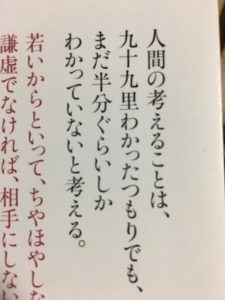 人間の考えることは、
九十九里わかったつもりでも、
まだ半分ぐらいしか
わかっていないと考える。
若いからといって、ちやほやしな
謙虚でなければ、相手にしない